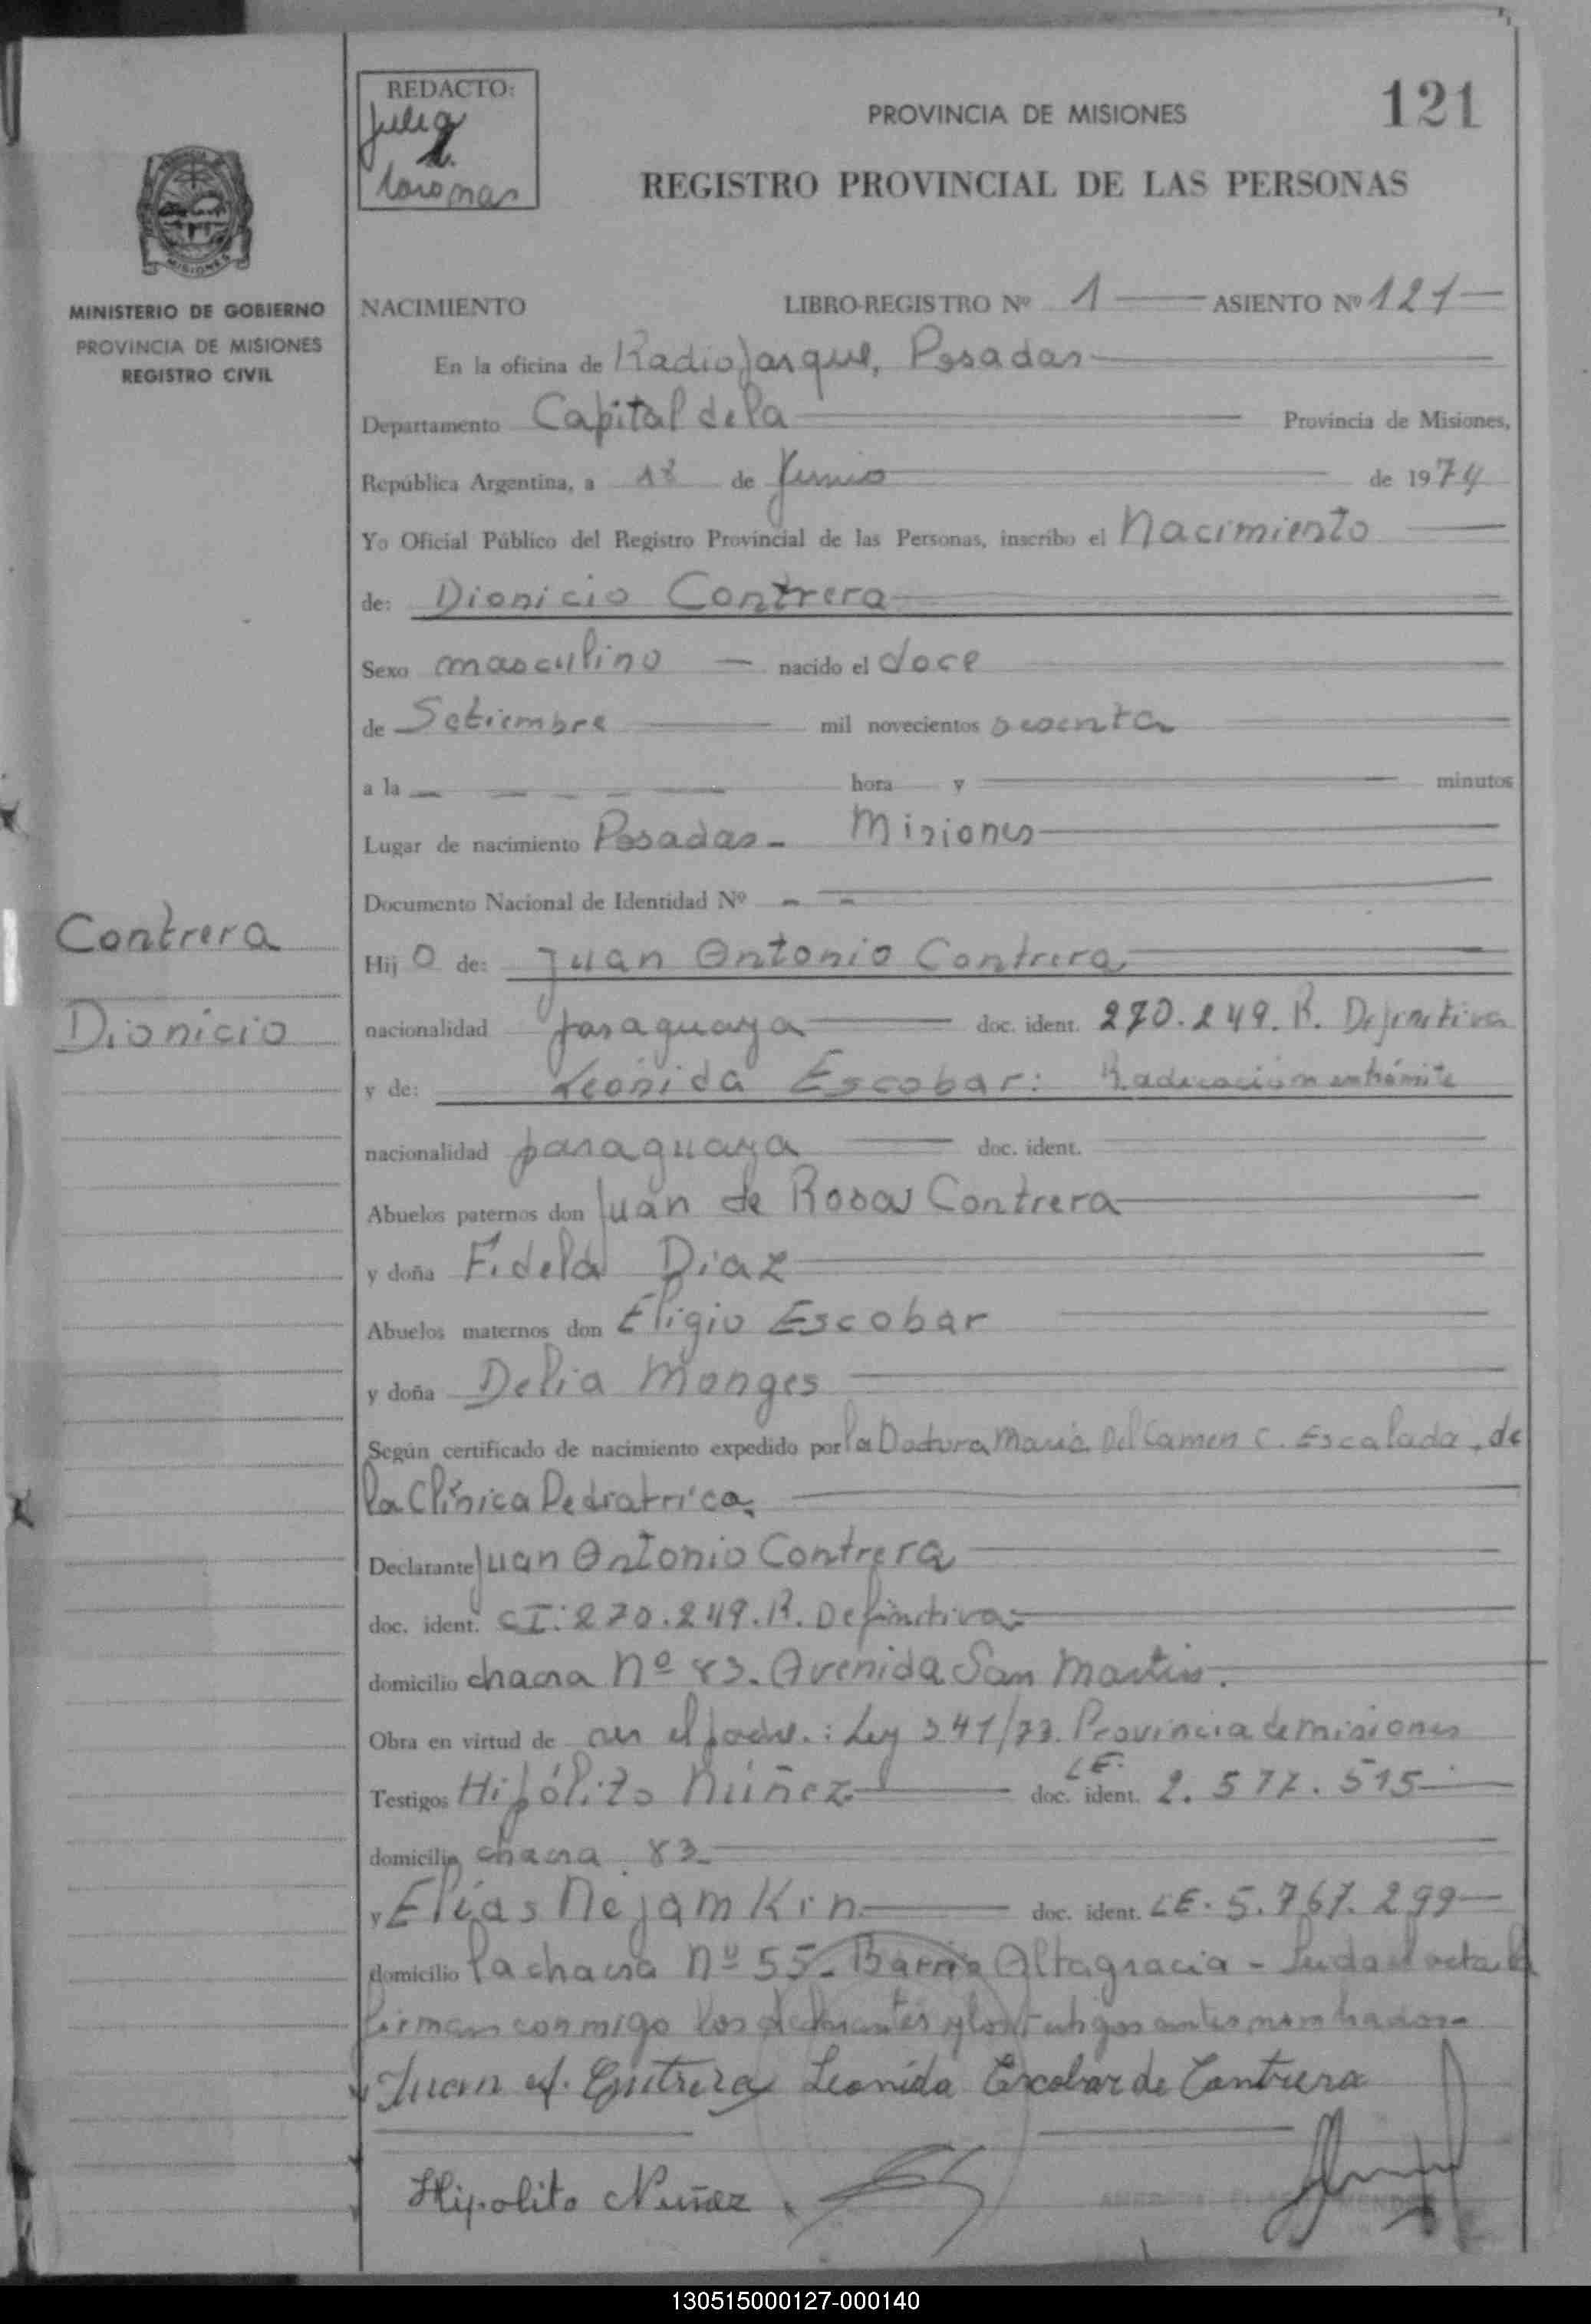 REDACTO:
Julia
PROVINCIA DE MISIONES
121
REGISTRO PROVINCIAL DE LAS PERSONAS
MISIONES
MINISTERIO DE GOBIERNO
PROVINCIA DE MISIONES
REGISTRO CIVIL
NACIMIENTO LIBRO-REGISTRO Nº 1 ASIENTO Nº 121
En la oficina de Radio Parque, Posadas
Departamento Capital de la Provincia de Misiones,
República Argentina, a de Junio de 1974
Yo Oficial Público del Registro Provincial de las Personas, inscribo el Nacimiento
de: Dionicio Contrera
Sexo masculino nacido el doce
de Setiembre mil novecientos
a la hora y minutos
Lugar de nacimiento Posadas - Misiones
Documento Nacional de Identidad Nº - -
Contrera
Dionicio
Hijo de: Juan Antonio Contrera
nacionalidad paraguaya doc. ident. 270.249. R. Definitiva
y de: Leonida Escobar: Radicación en trámite
nacionalidad paraguaya doc. ident.
Abuelos paternos don Juan de Rosas Contrera
y doña Fidela Diaz
Abuelos maternos don Eligio Escobar
y doña Delia Monges
Según certificado de nacimiento expedido por la Doctora Maria Del Carmen C. Escalada, de
la Clínica Pediatrica.
Declarante Juan Antonio Contrera
doc. ident. CI: 270.249. R. Definitiva
domicilio chacra Nº 83. Avenida San Martin.
Obra en virtud de ser el padre.: Ley 341/73. Provincia de Misiones
Testigos Hipólito Núñez doc. ident. LE. 2.577.515
domicilio chacra 83.
y Elías Nejamkin doc. ident. LE. 5.767.299
domicilio la chacra Nº 55. Barrio Altagracia - Leida el acta la
firman conmigo los declarantes y los testigos antes nombrados.-
Juan A. Contrera Leonida Escobar de Contrera
Hipolito Nuñez
130515000127-000140